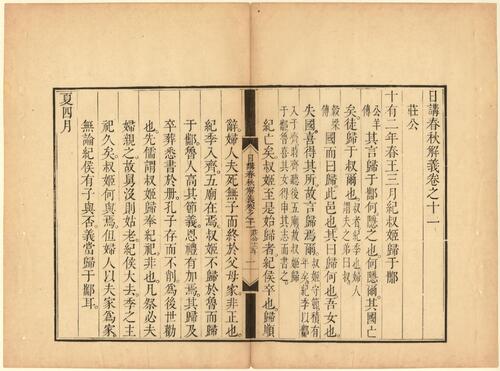 日講春秋解義卷之十一
莊公
十有二年春王三月紀叔姬歸于酅
公羊傳其言歸于酅何隱之也何隱爾其國亡
矣徒歸于叔爾也叔者紀季也婦人謂夫之弟曰叔
穀梁傳國而曰歸此邑也其曰歸何也吾女也
失國喜得其所故言歸焉爾叔姬守節積有年矣紀季以酅
入于齊齊聽後五廟故叔姬歸于酅魯喜其女得申其志而書之
紀亡矣叔姬至是始歸者紀侯卒也歸順
日講春秋解義卷之十一
辭婦人夫死無子而終於父母家非正也
紀季入齊五廟在焉叔姬不歸於魯而歸
于酅魯人高其節義恩禮有加焉其歸及
卒葬悉書於冊孔子存而不削為後世勸
也先儒謂叔姬歸奉紀祀非也凡祭必夫
婦親之故舅沒則姑老紀侯大去季之主
祀久矣叔姬何與焉但婦人以夫家為家
無論紀侯有子與否義當歸于酅耳
夏四月